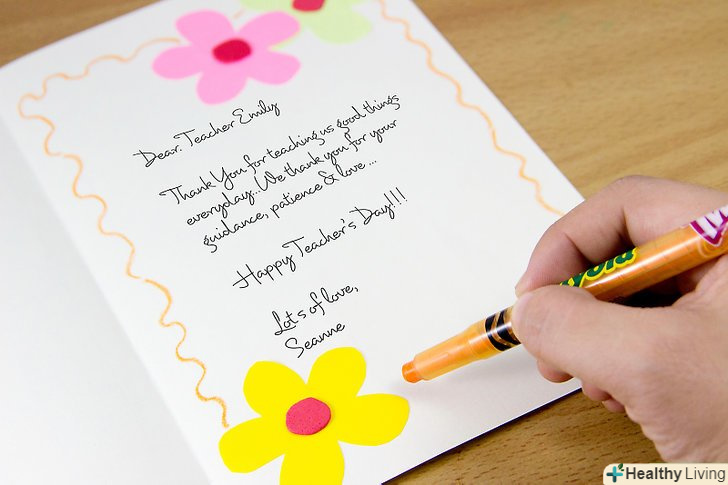 Dear. Teacher Emily
Thank You for teaching us good things
everyday...We thank you for your
guidance, patience & love ...
Happy Teacher's Day!!!
Lots of love,
Seanne
yola
Healthy Living